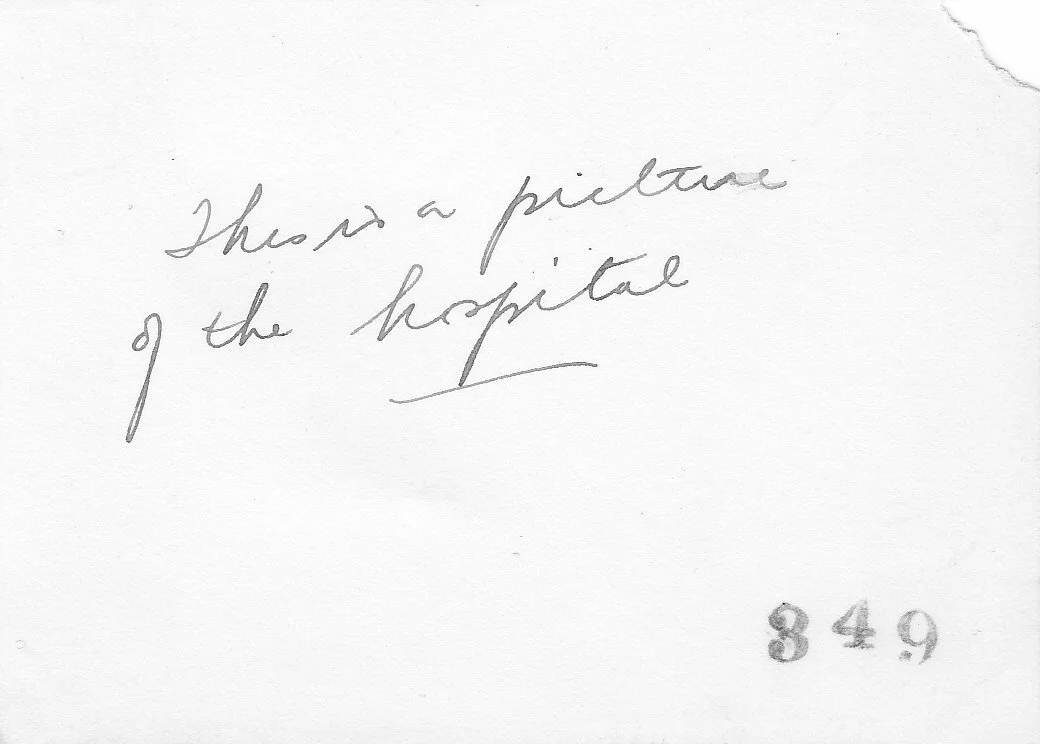 This is a picture
of the hospital
349